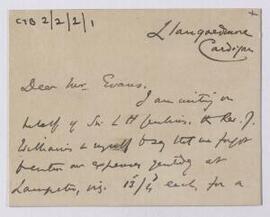 CTB 2/2/2/1
Llangoedmore
Cardigan
Dear Mr Evans,
I am writing on
behalf of Sir L H Jenkins, the Rev. J.
Williams & myself to say that we forgot
to mention our expenses yesterday at
Lampeter, viz. 15/ each for a